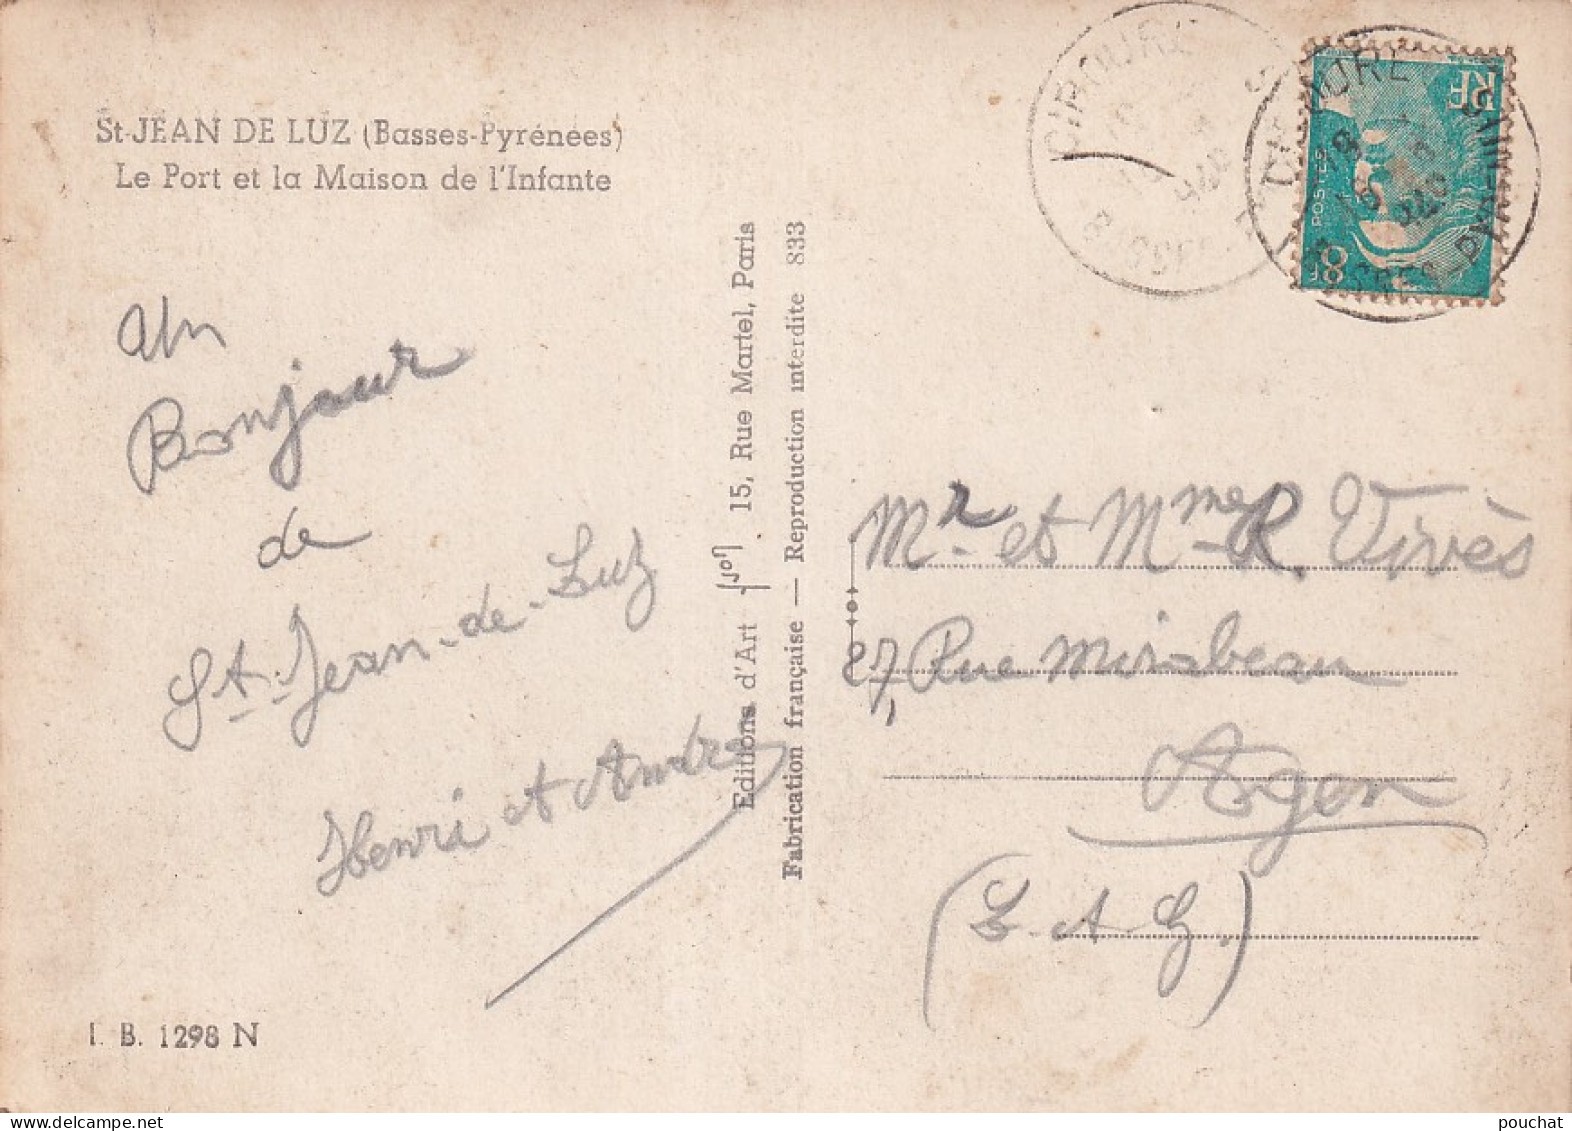 St-JEAN DE LUZ (Basses-Pyrénées)
Le Port et la Maison de l'Infante
Un
Bonjour
de
St-Jean-de-Luz
Henri et André
I. B. 1298 N
Editions d'Art Yvon 15, Rue Martel, Paris
Fabrication française — Reproduction interdite 833
CIBOURE
BASSES-PYRÉNÉES
RF
POSTES
8F
Mr et Mme R. Vivès
27, Rue Mirabeau
Agen
(L. et G.)
pouchat